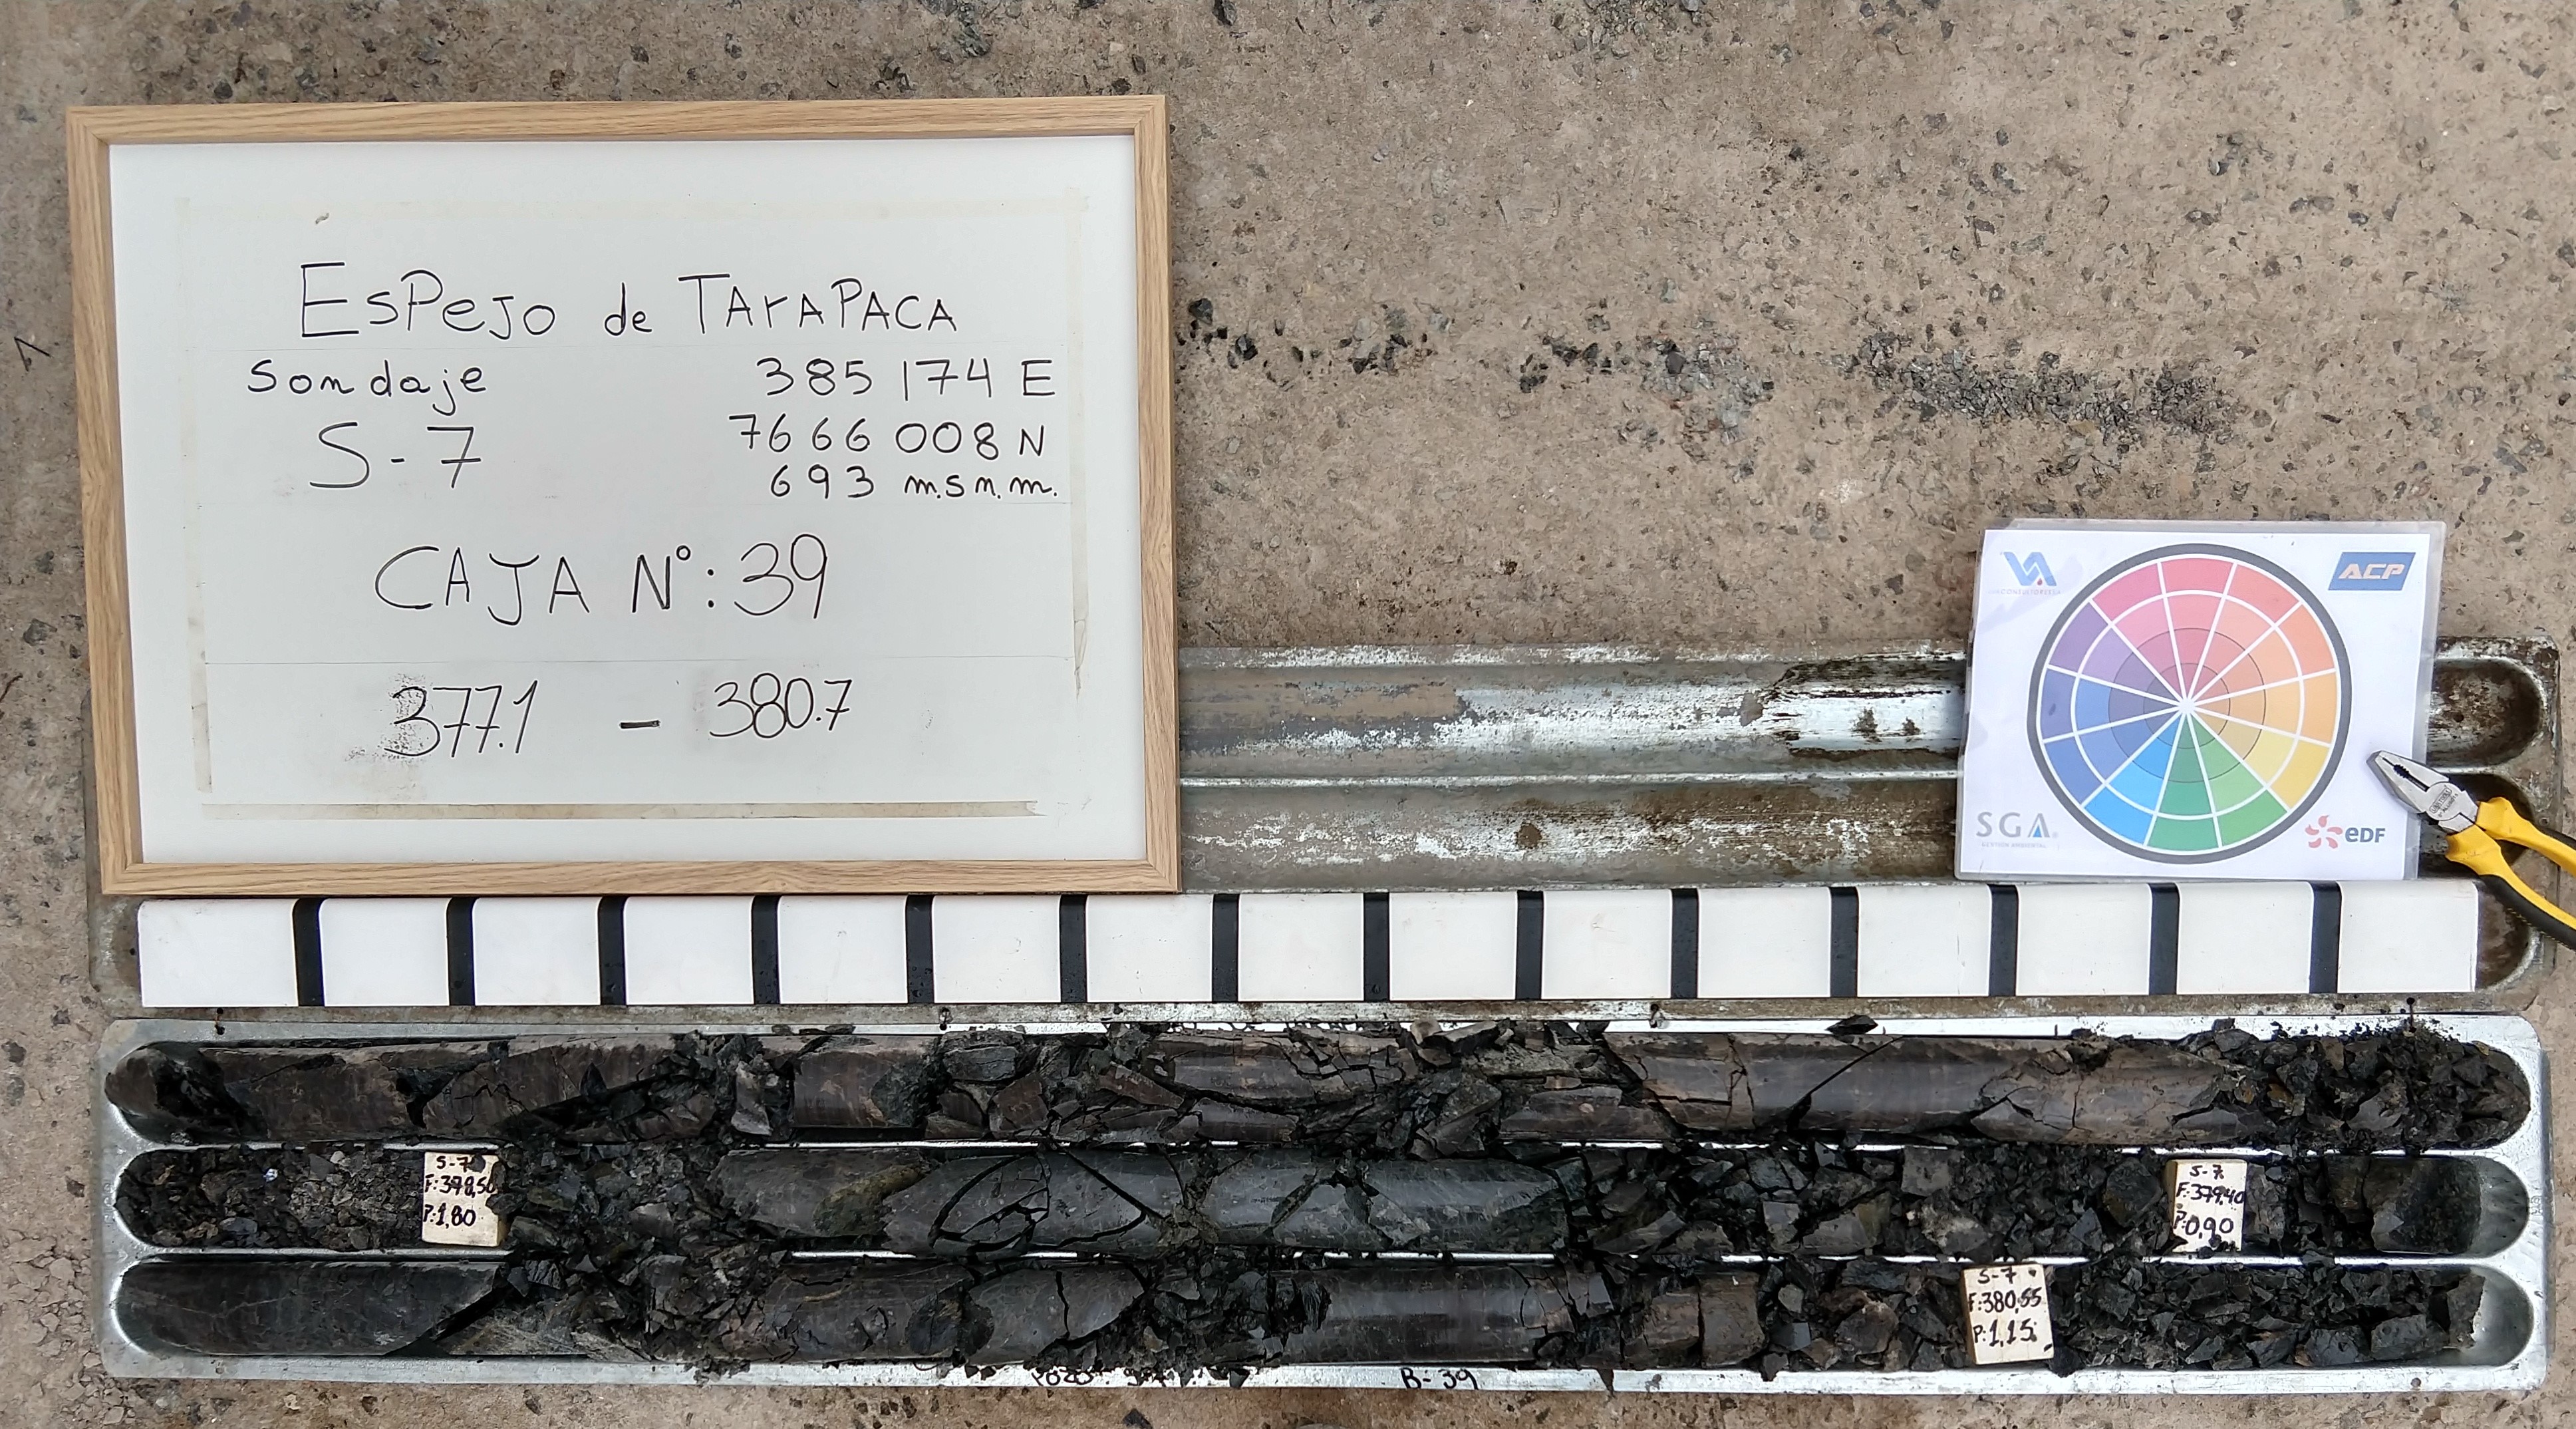 ESPEJO de TArAPACA
Sondaje
385 174 E
S-7
7666 008 N
693 m.s.n.m.
CAJA N°: 39
377.1 - 380.7
ACP
SGA
GESTIÓN AMBIENTAL
eDF
S-7
F:378,50
P:1,80
S-7
F:379,40
P:0,90
S-7
F:380,55
P:1,15
B-39